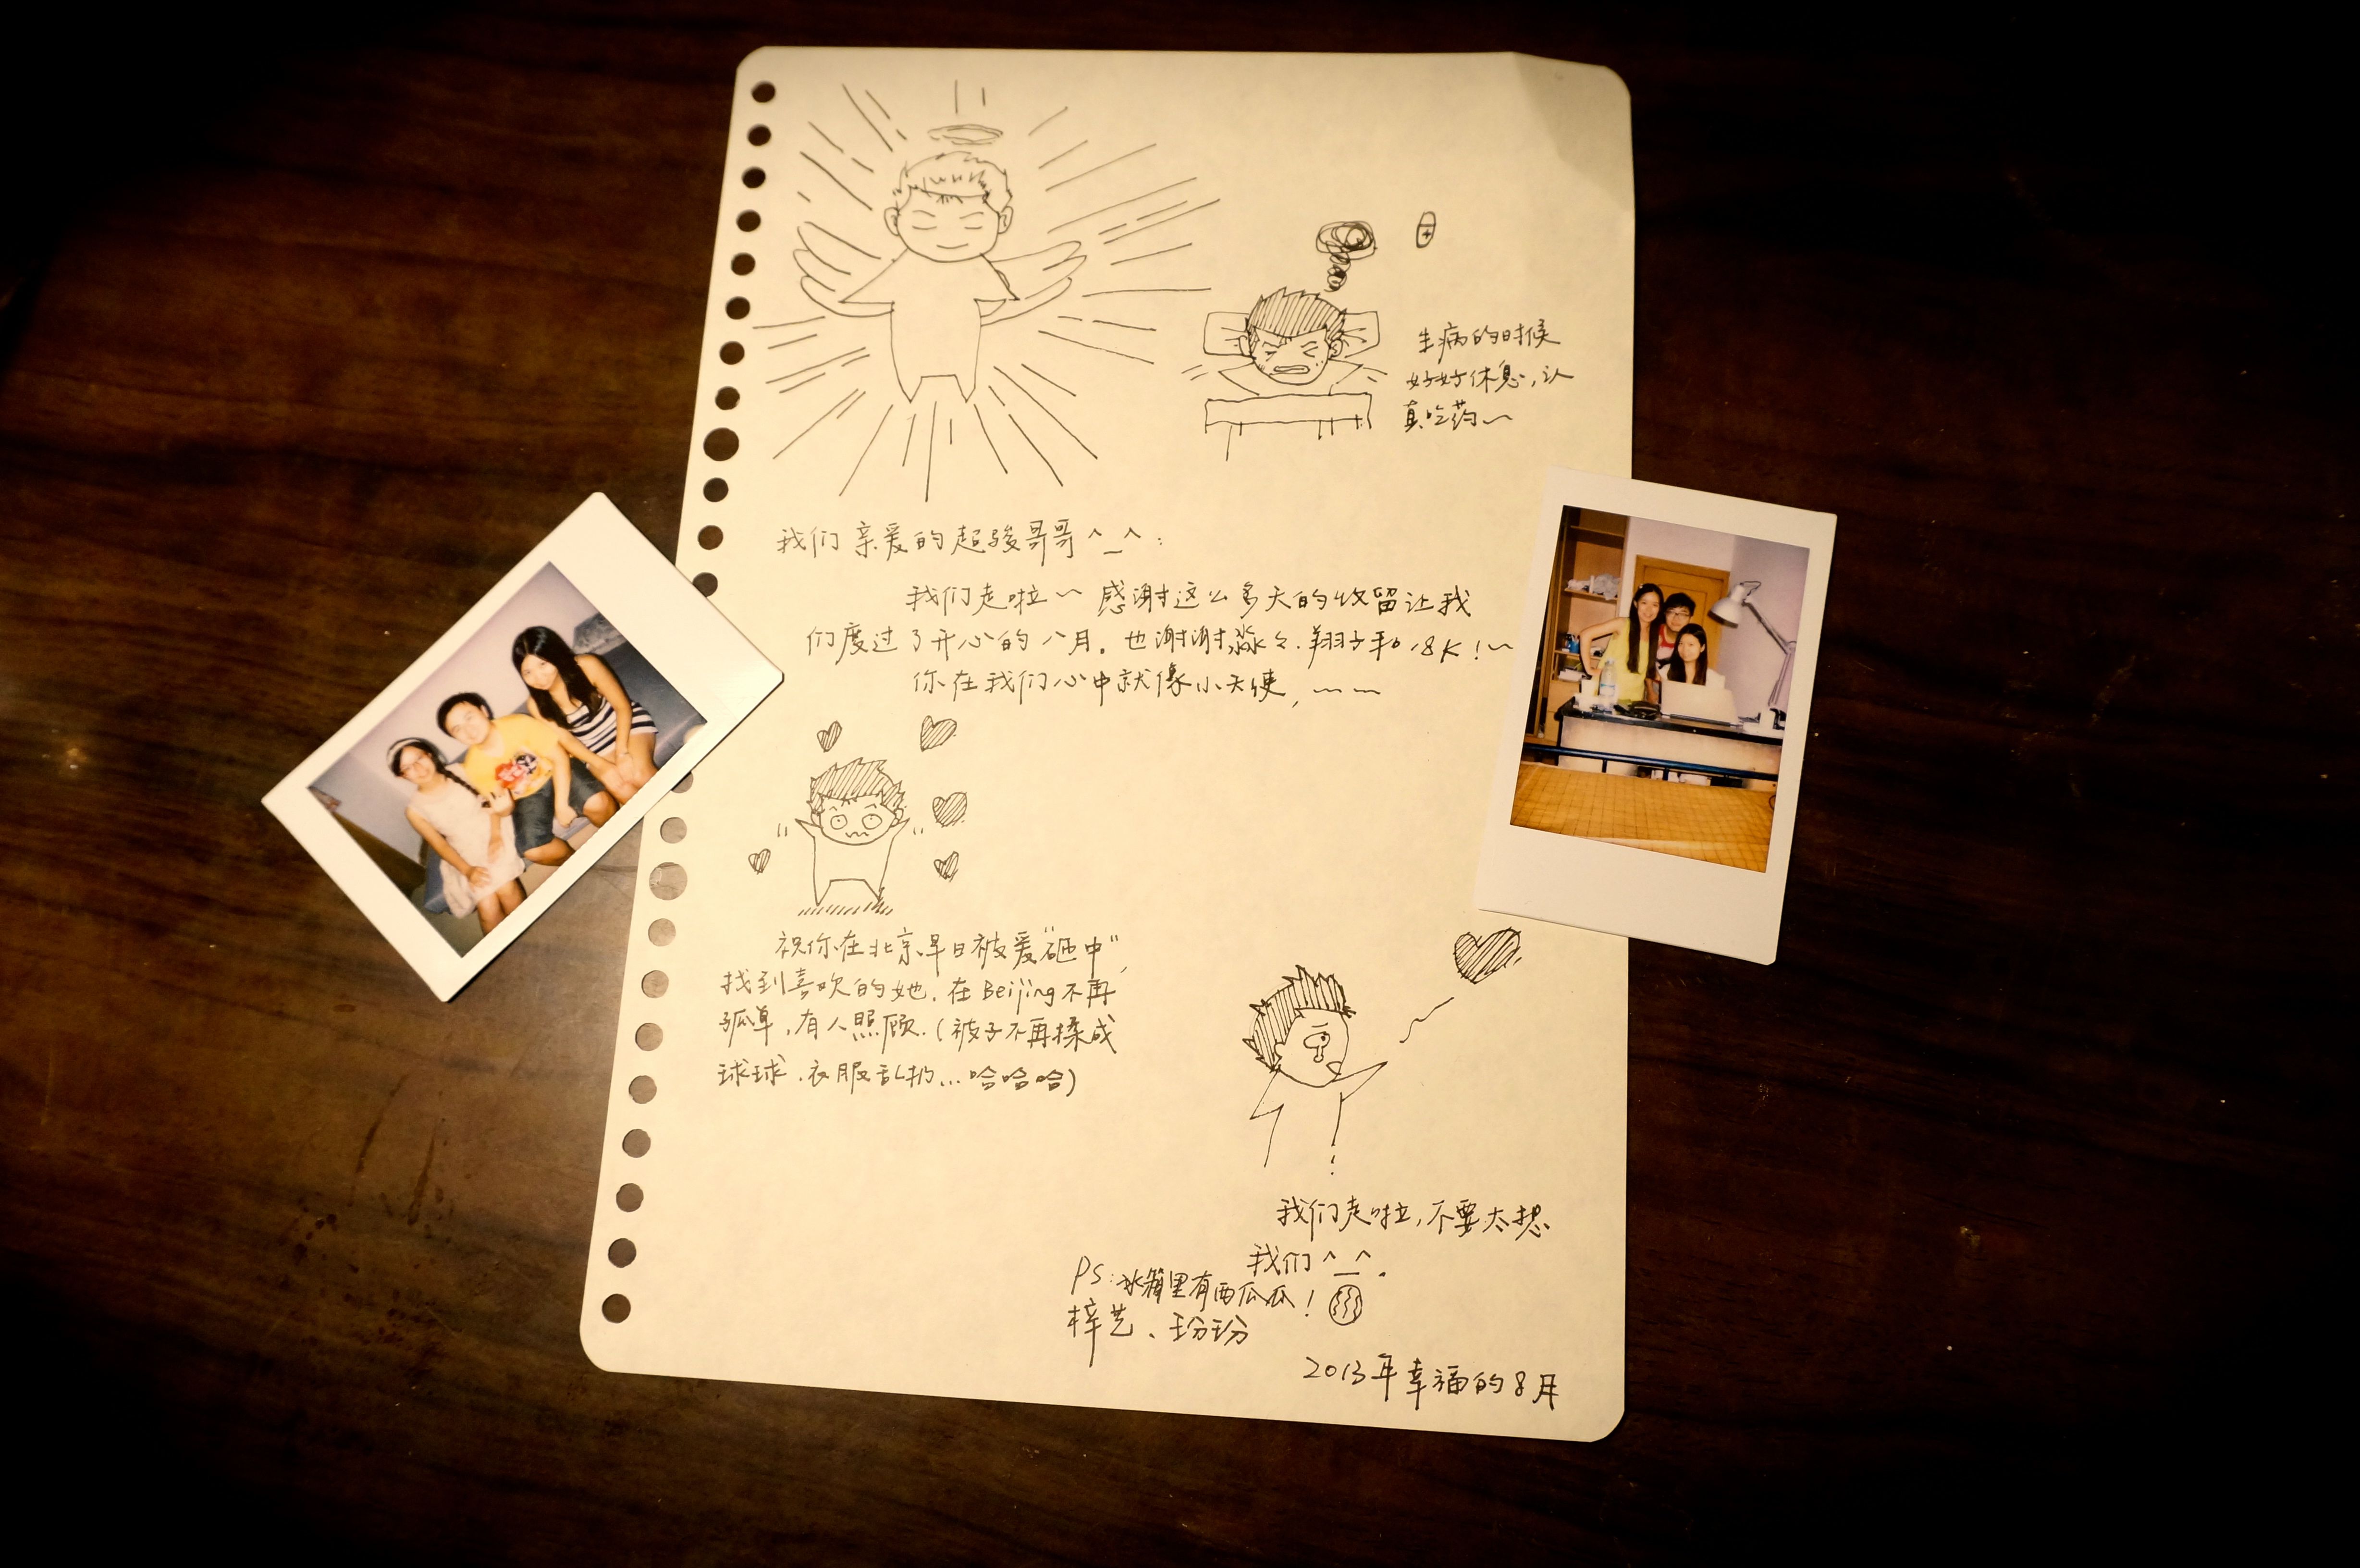 生病的时候
好好休息,认
真吃药~
我们亲爱的超骏哥哥^_^:
我们走啦~ 感谢这么多天的收留让我
们度过了开心的八月。也谢谢淼々.翔子和18K!~
你在我们心中就像小天使,~~
祝你在北京早日被爱"砸中",
找到喜欢的她.在Beijing不再
孤单,有人照顾.(被子不再揉成
球球.衣服乱扔...哈哈哈)
我们走啦,不要太想
我们^_^.
PS:冰箱里有西瓜瓜!
梓艺、玢玢
2013年幸福的8月